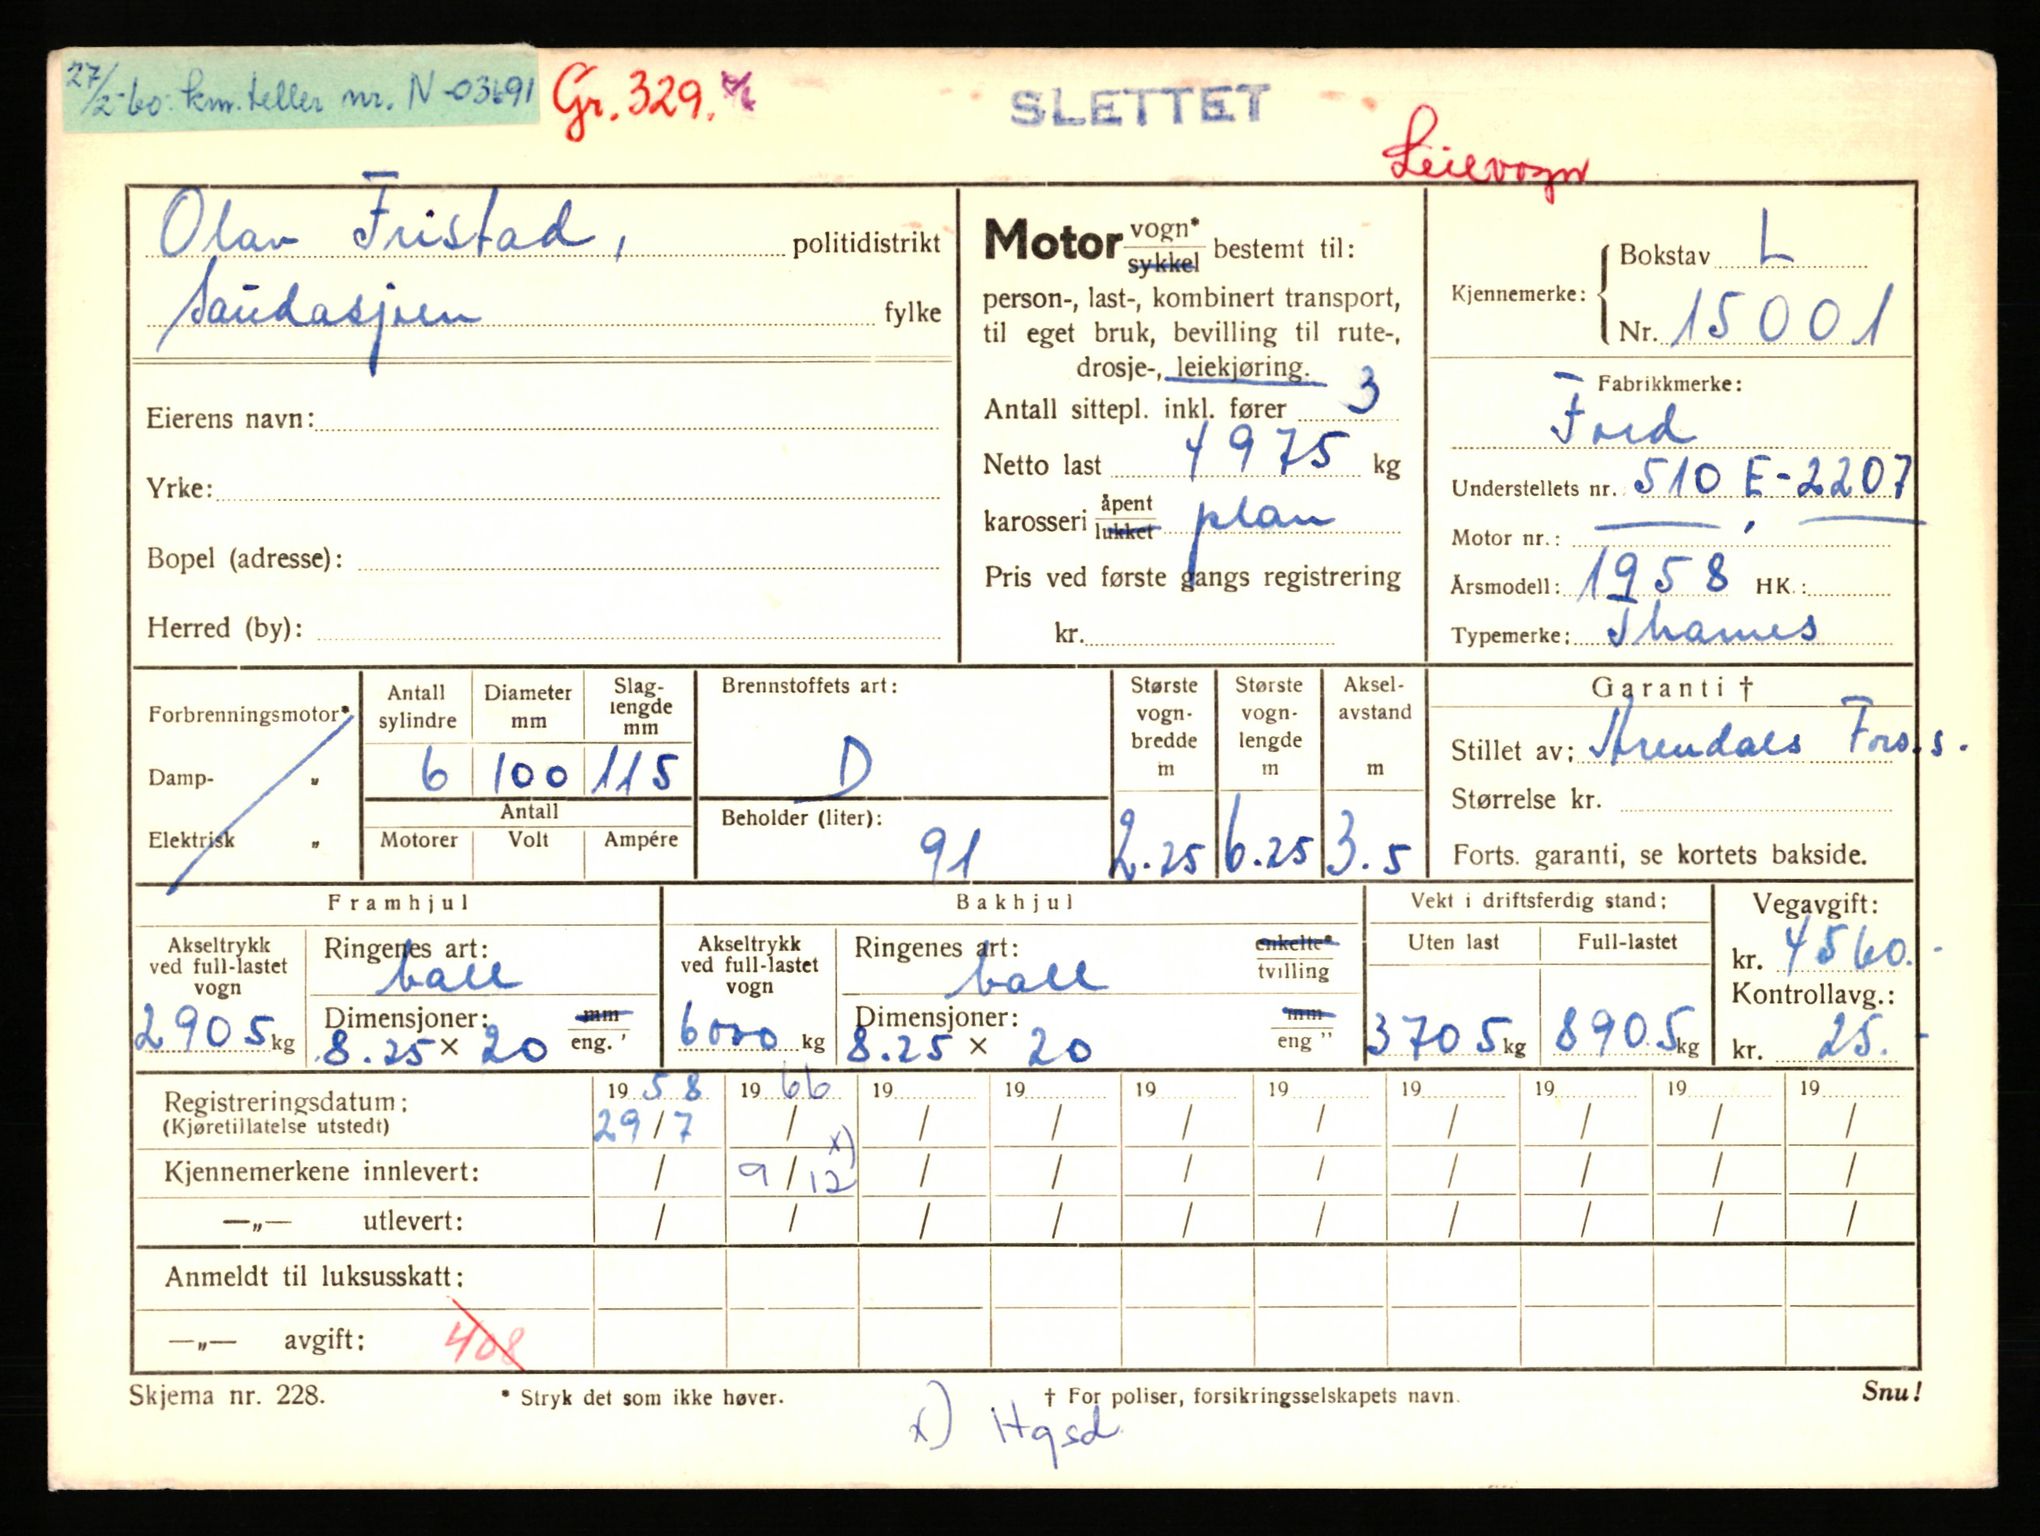 27/2-60: km.teller nr. N-03691
Gr. 329.
SLETTET
Leievogn
Olav Fristad, politidistrikt
Saudasjøen fylke
Eierens navn:
Yrke:
Bopel (adresse):
Herred (by):
Motor vogn* sykkel bestemt til:
person-, last-, kombinert transport,
til eget bruk, bevilling til rute-,
drosje-, leiekjøring.
Antall sittepl. inkl. fører 3
Netto last 4975 kg
karosseri åpent lukket plan
Pris ved første gangs registrering
kr.
Kjennemerke: Bokstav L
Nr. 15001
Fabrikkmerke:
Ford
Understellets nr. 510 E-2207
Motor nr.:
Årsmodell: 1958 HK.:
Typemerke: Thames
Forbrenningsmotor*
Damp- „
Elektrisk „
Antall sylindre
Diameter mm
Slaglengde mm
6 100 115
Antall
Motorer Volt Ampére
Brennstoffets art:
D
Beholder (liter):
91
Største vogn-bredde m
2.25
Største vogn-lengde m
6.25
Aksel-avstand m
3.5
Garanti †
Stillet av: Arendals Fors.s.
Størrelse kr.
Forts. garanti, se kortets bakside.
Framhjul
Akseltrykk ved full-lastet vogn
2905 kg
Ringenes art:
ball
Dimensjoner: mm eng. "
8.25 × 20
Bakhjul
Akseltrykk ved full-lastet vogn
6000 kg
Ringenes art: enkelte* tvilling
ball
Dimensjoner: mm eng "
8.25 × 20
Vekt i driftsferdig stand:
Uten last Full-lastet
3705 kg 8905 kg
Vegavgift:
kr. 4560.-
Kontrollavg.:
kr. 25.-
1958 1966 19 19 19 19 19 19 19 19
Registreringsdatum: 29/7 / / / / / / / / /
(Kjøretillatelse utstedt)
Kjennemerkene innlevert: / 9/12 x) / / / / / / / /
—„— utlevert: / / / / / / / / / /
Anmeldt til luksusskatt:
—„— avgift: 408
Skjema nr. 228. * Stryk det som ikke høver. † For poliser, forsikringsselskapets navn. Snu!
x) Hgsd